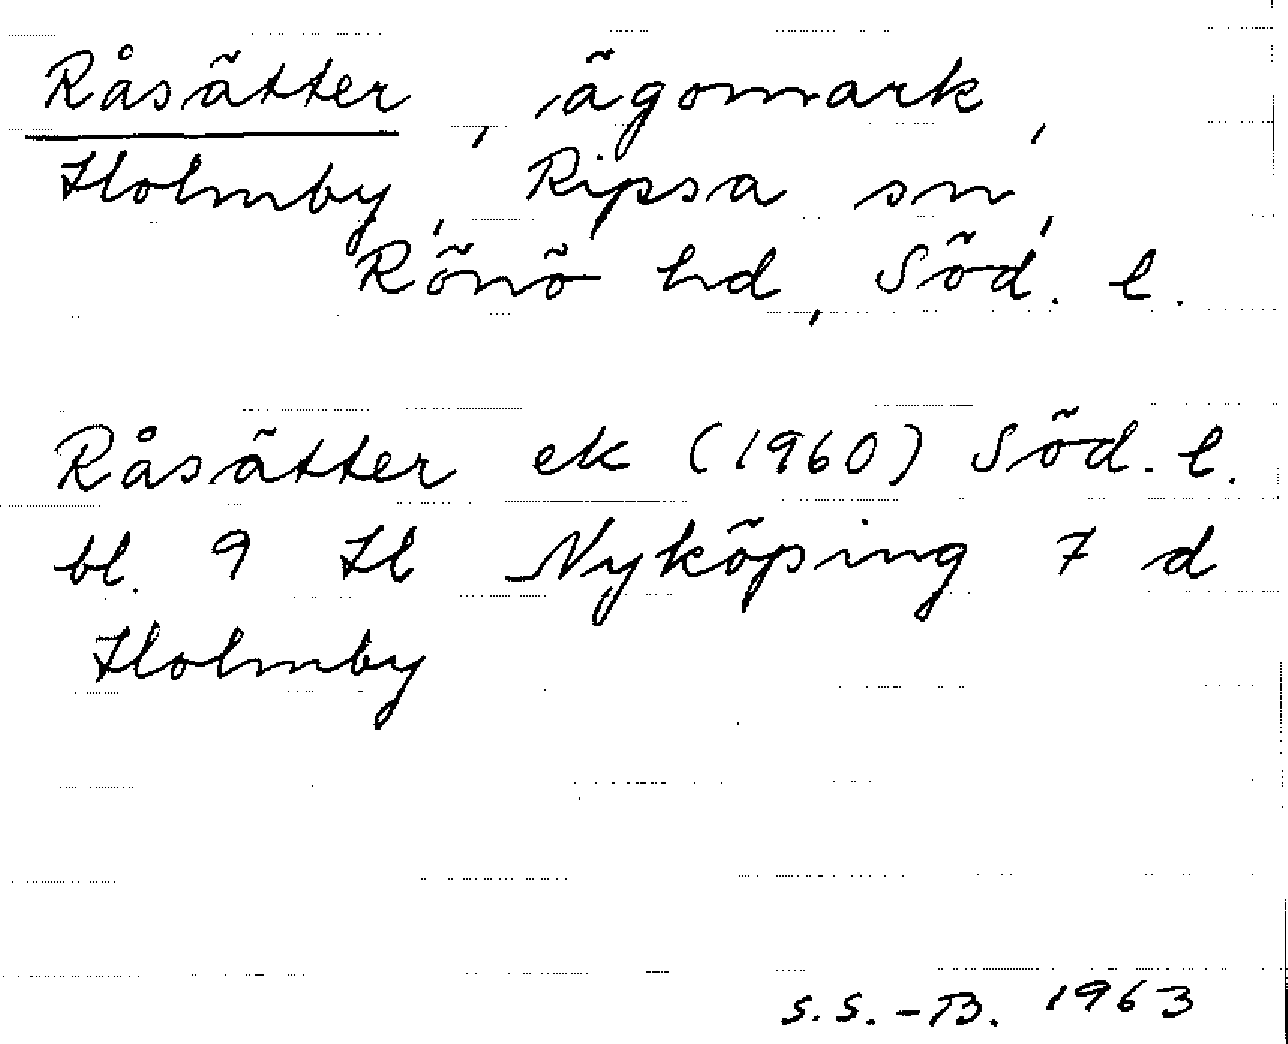 Råsätter, ägomark,
Holmby, Ripsa sn,
Rönö hd, Söd. l.
Råsätter ek (1960) Söd. l.
bl. 9 H Nyköping 7 d
Holmby
S.S.-B. 1963